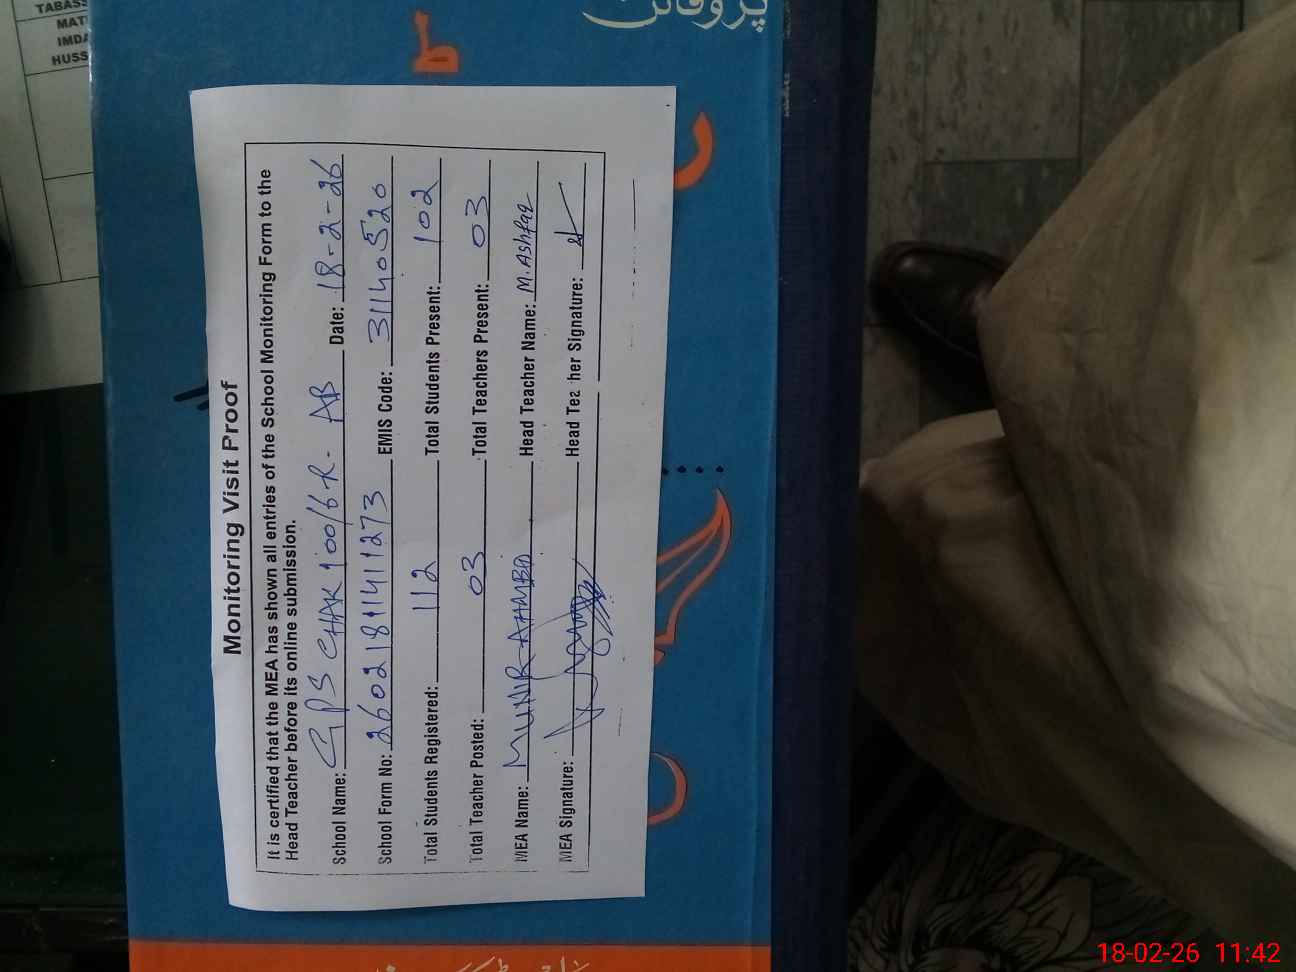 TABASS
MAT
IMDA
HUSS
پروفائل
Monitoring Visit Proof
It is certified that the MEA has shown all entries of the School Monitoring Form to the
Head Teacher before its online submission.
School Name: GPS CHAK 100/6R- AB Date: 18-2-26
School Form No: 26021811411273 EMIS Code: 31140520
Total Students Registered: 112 Total Students Present: 102
Total Teacher Posted: 03 Total Teachers Present: 03
MEA Name: MUNIR AHMED Head Teacher Name: M. Ashfaq
MEA Signature: Head Teacher Signature:
18-02-26 11:42